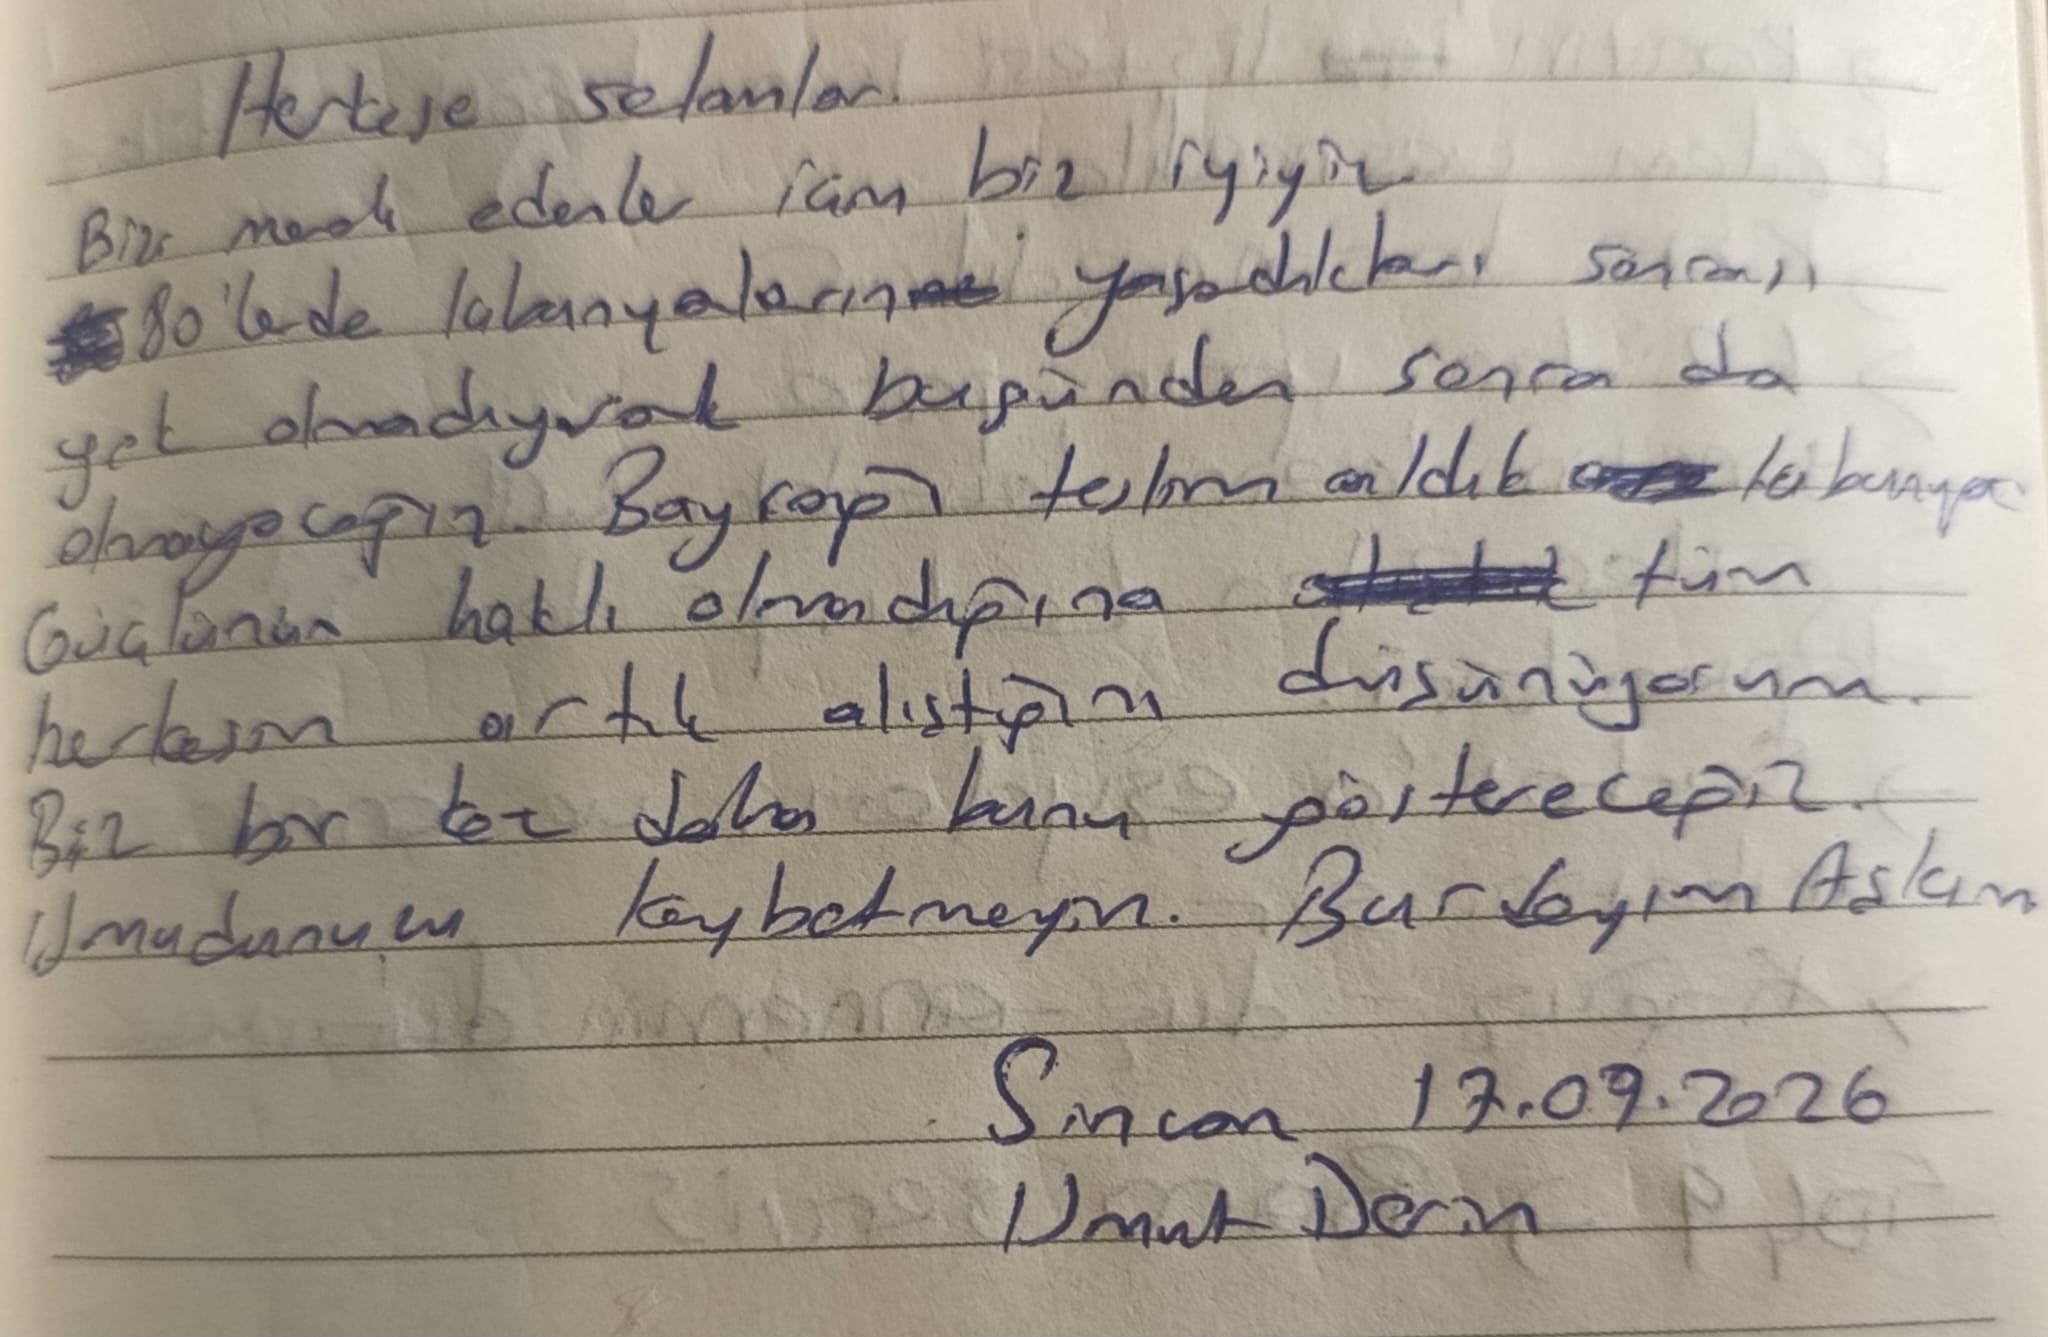 Herkese selamlar.
Bizi merak edenler için biz iyiyiz
80'lerde lubunyaların yaşadıkları sonra nihayet
yet olmadıysak bugünden sonra da
olmayacağız. Bayrağı teslim aldık lubunya
Güçlünün haklı olmadığına tüm
herkesin artık alıştığını düşünüyorum.
Biz bir kez daha bunu göstereceğiz.
Umudunuzu kaybetmeyin. Burdayım Aşkım
Sincan 17.09.2026
Umut Derin